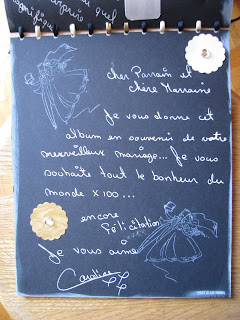 quel
cher Parrain et
chère Marraine
Je vous donne cet
album en souvenir de votre
merveilleux mariage... Je vous
souhaite tout le bonheur du
monde x 100...
encore
Félicitation
Je vous aime
Caroline